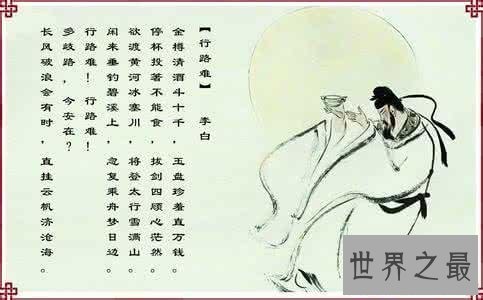 【行路难】 李白
金樽清酒斗十千，玉盘珍羞直万钱。
停杯投著不能食，拔剑四顾心茫然。
欲渡黄河冰塞川，将登太行雪满山。
闲来垂钓碧溪上，忽复乘舟梦日边。
行路难！行路难！
多歧路，今安在？
长风破浪会有时，直挂云帆济沧海。
世界之最